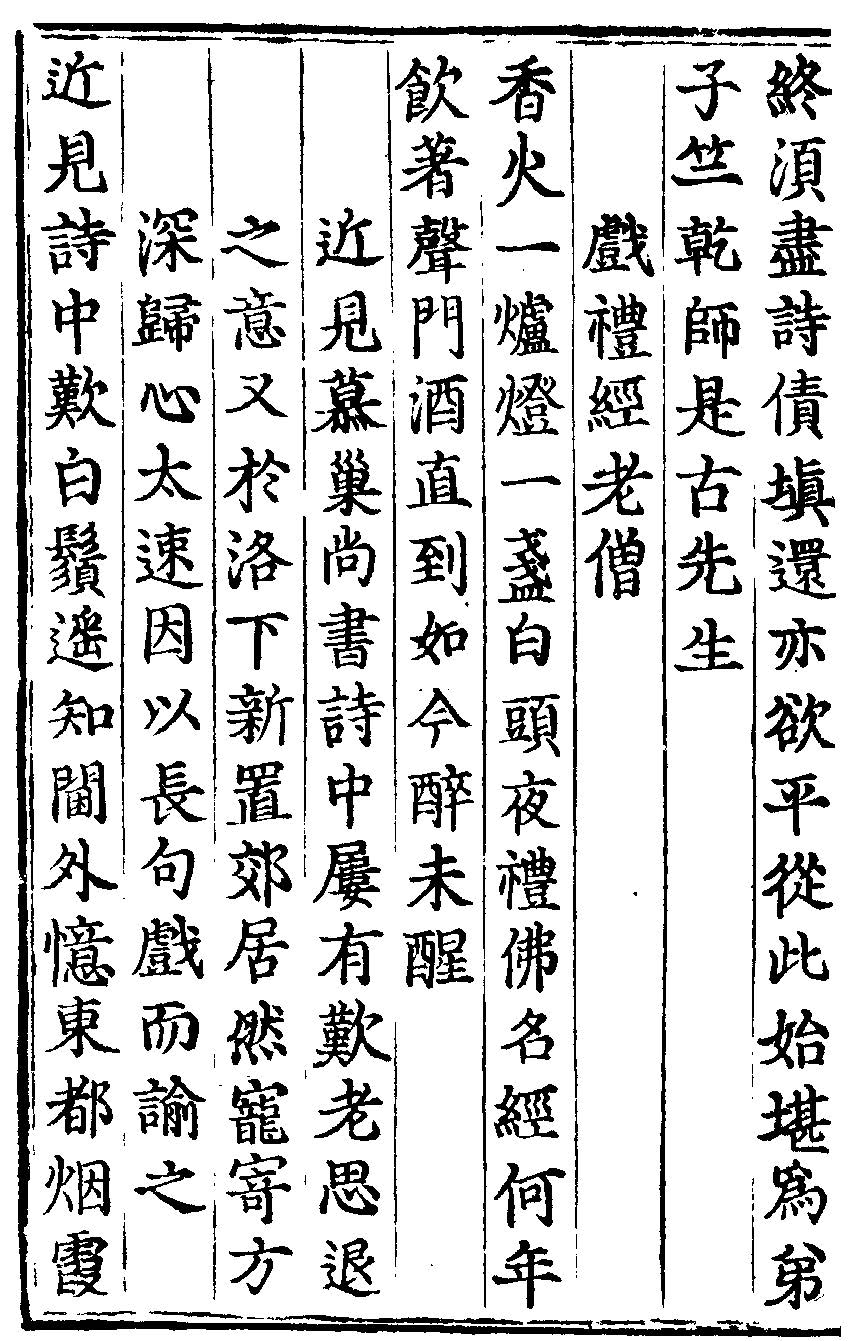 終須盡詩債填還亦欲平從此始堪為弟
子竺乾師是古先生
戲禮經老僧
香火一爐燈一盞白頭夜禮佛名經何年
飲著聲門酒直到如今醉未醒
近見慕巢尚書詩中屢有歎老思退
之意又於洛下新置郊居然寵寄方
深歸心太速因以長句戲而諭之
近見詩中歎白鬚遥知閫外憶東都烟霞